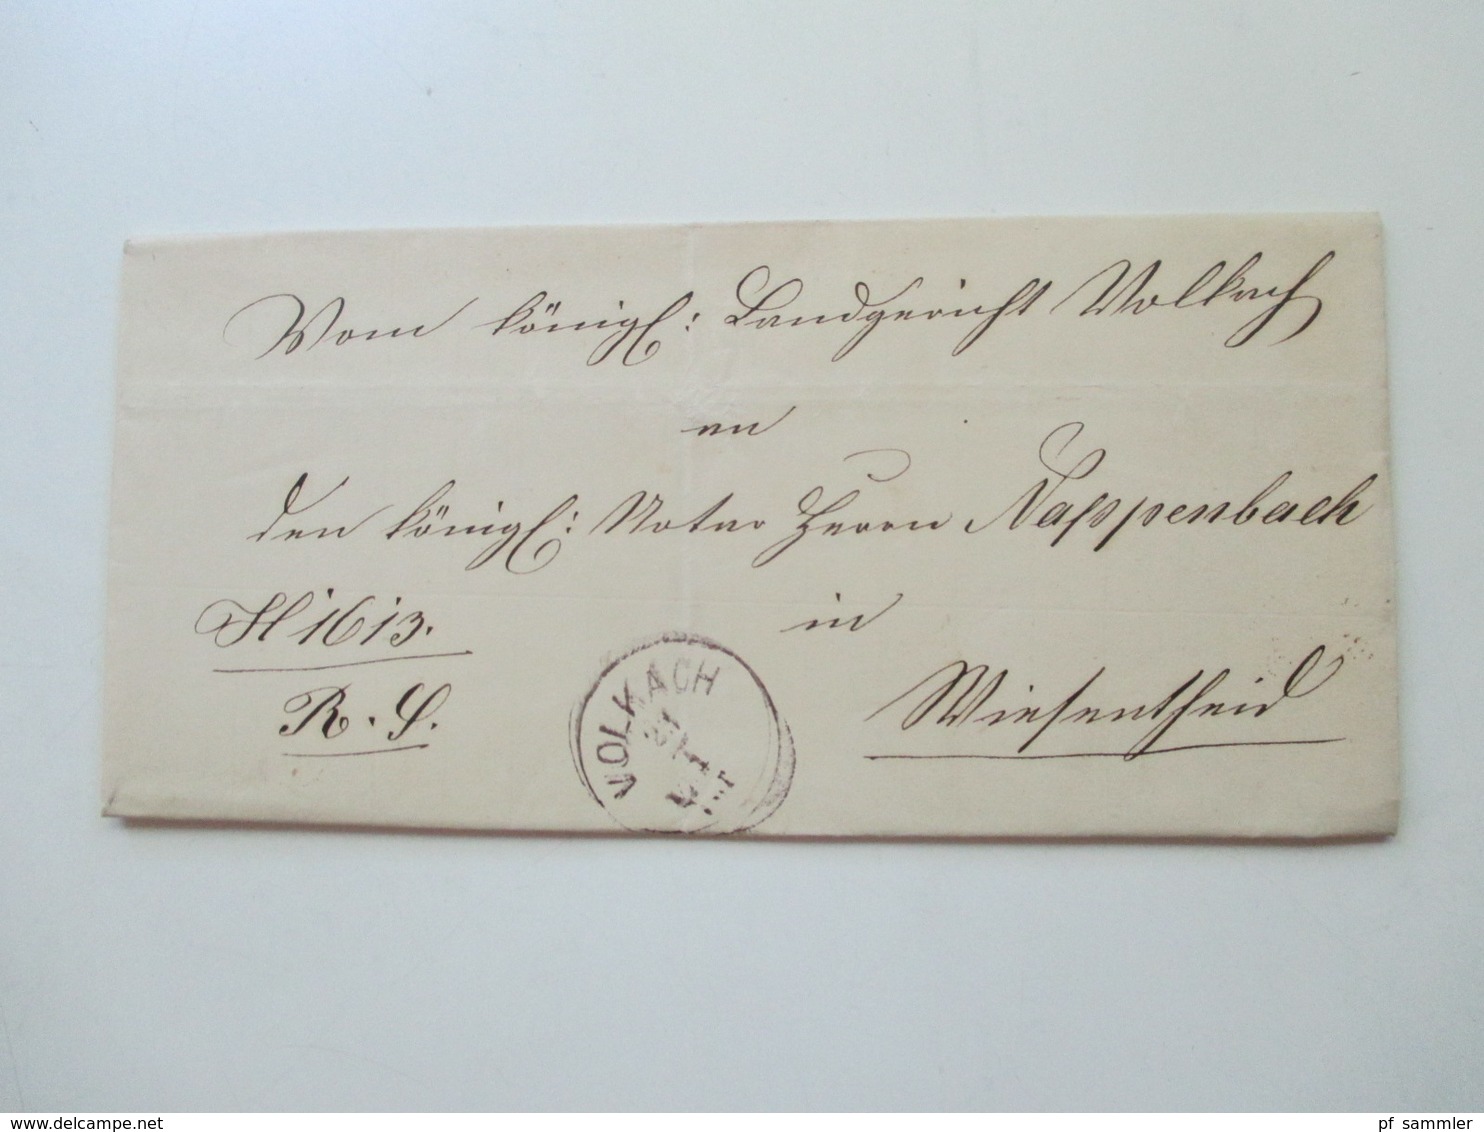 Vom königl: Landgericht Volkach
an
den königl: Notar Herrn Nappenbach
in
H 1613.
Wiesentheid
R. S.
VOLKACH
21
delcampe.net
pf_sammler